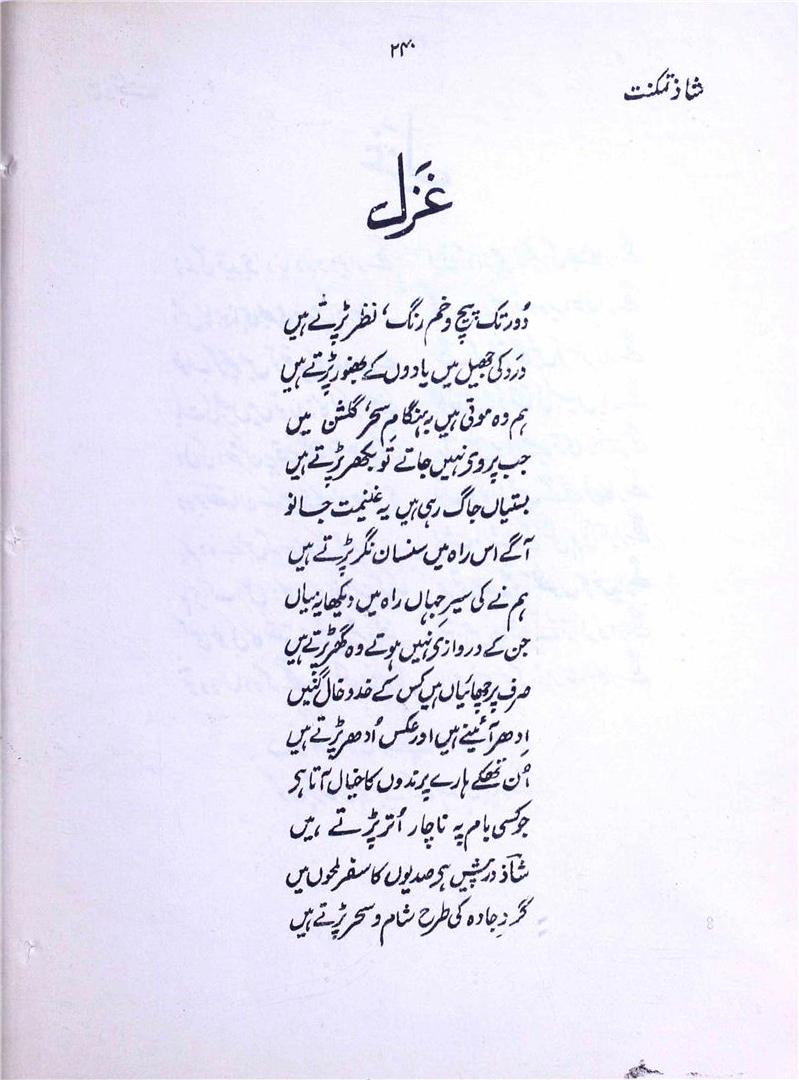 ۲۴۰
شاذ تمکنت
غزل
دُور تک پیچ و خم رنگ، نظر پڑتے ہیں
دَرد کی جھیل میں یادوں کے بھنور پڑتے ہیں
ہم وہ موتی ہیں بہ ہنگامِ سحر، گلشن میں
جب پروی نہیں جاتے تو بکھر پڑتے ہیں
بستیاں جاگ رہی ہیں یہ غنیمت جانو
آگے اس راہ میں سنسان نگر پڑتے ہیں
ہم نے کی سیرِ جہاں راہ میں دیکھا یہ زیاں
جن کے دروازی نہیں ہوتے وہ گھر پڑتے ہیں
صرف پرچھائیاں ہیں کس کے خد و خال گنیں
اِدھر آئینے ہیں اور عکس اُدھر پڑتے ہیں
اُن تھکے ہارے پرندوں کا خیال آتا ہی
جو کسی بام پہ ناچار اُتر پڑتے ہیں
شاذؔ درپیش ہی صدیوں کا سفر لمحوں میں
گردِ جادہ کی طرح شام و سحر پڑتے ہیں